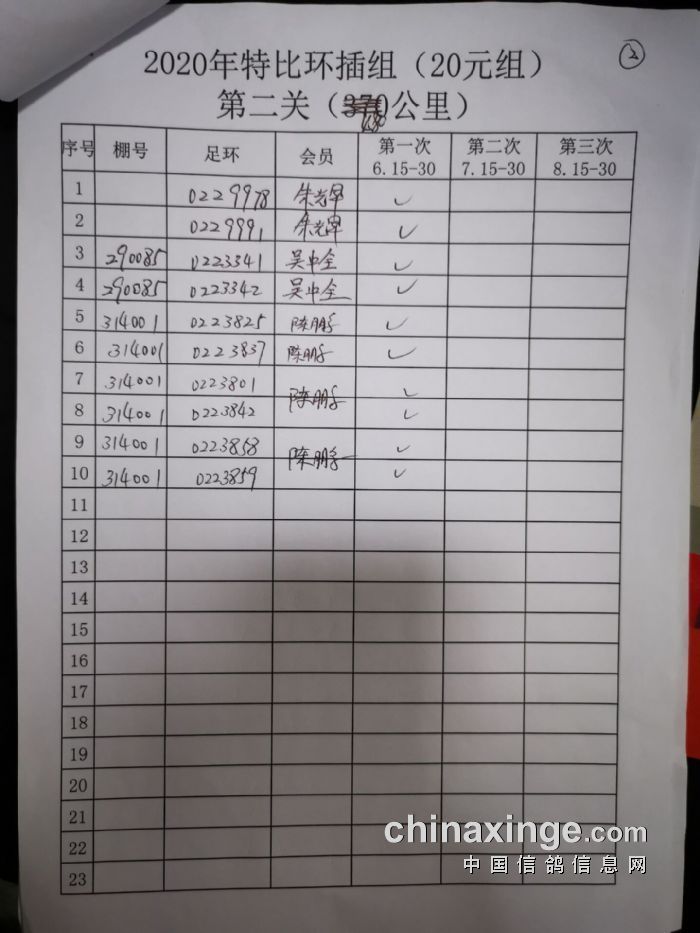 ②
2020年特比环插组（20元组）
第二关（公里）
序号 棚号 足环 会员 第一次 第二次 第三次
6.15-30 7.15-30 8.15-30
1 0229978 ✓
2 0229991 ✓
3 290085 0223341 吴中全 ✓
4 290085 0223342 吴中全 ✓
5 314001 0223825 陈鹏 ✓
6 314001 0223837 陈鹏 ✓
7 314001 0223801 陈鹏 ✓
8 314001 0223842 ✓
9 314001 0223858 陈鹏 ✓
10 314001 0223859 ✓
11
12
13
14
15
16
17
18
19
20
21
22
23
chinaxinge.com
中国信鸽信息网